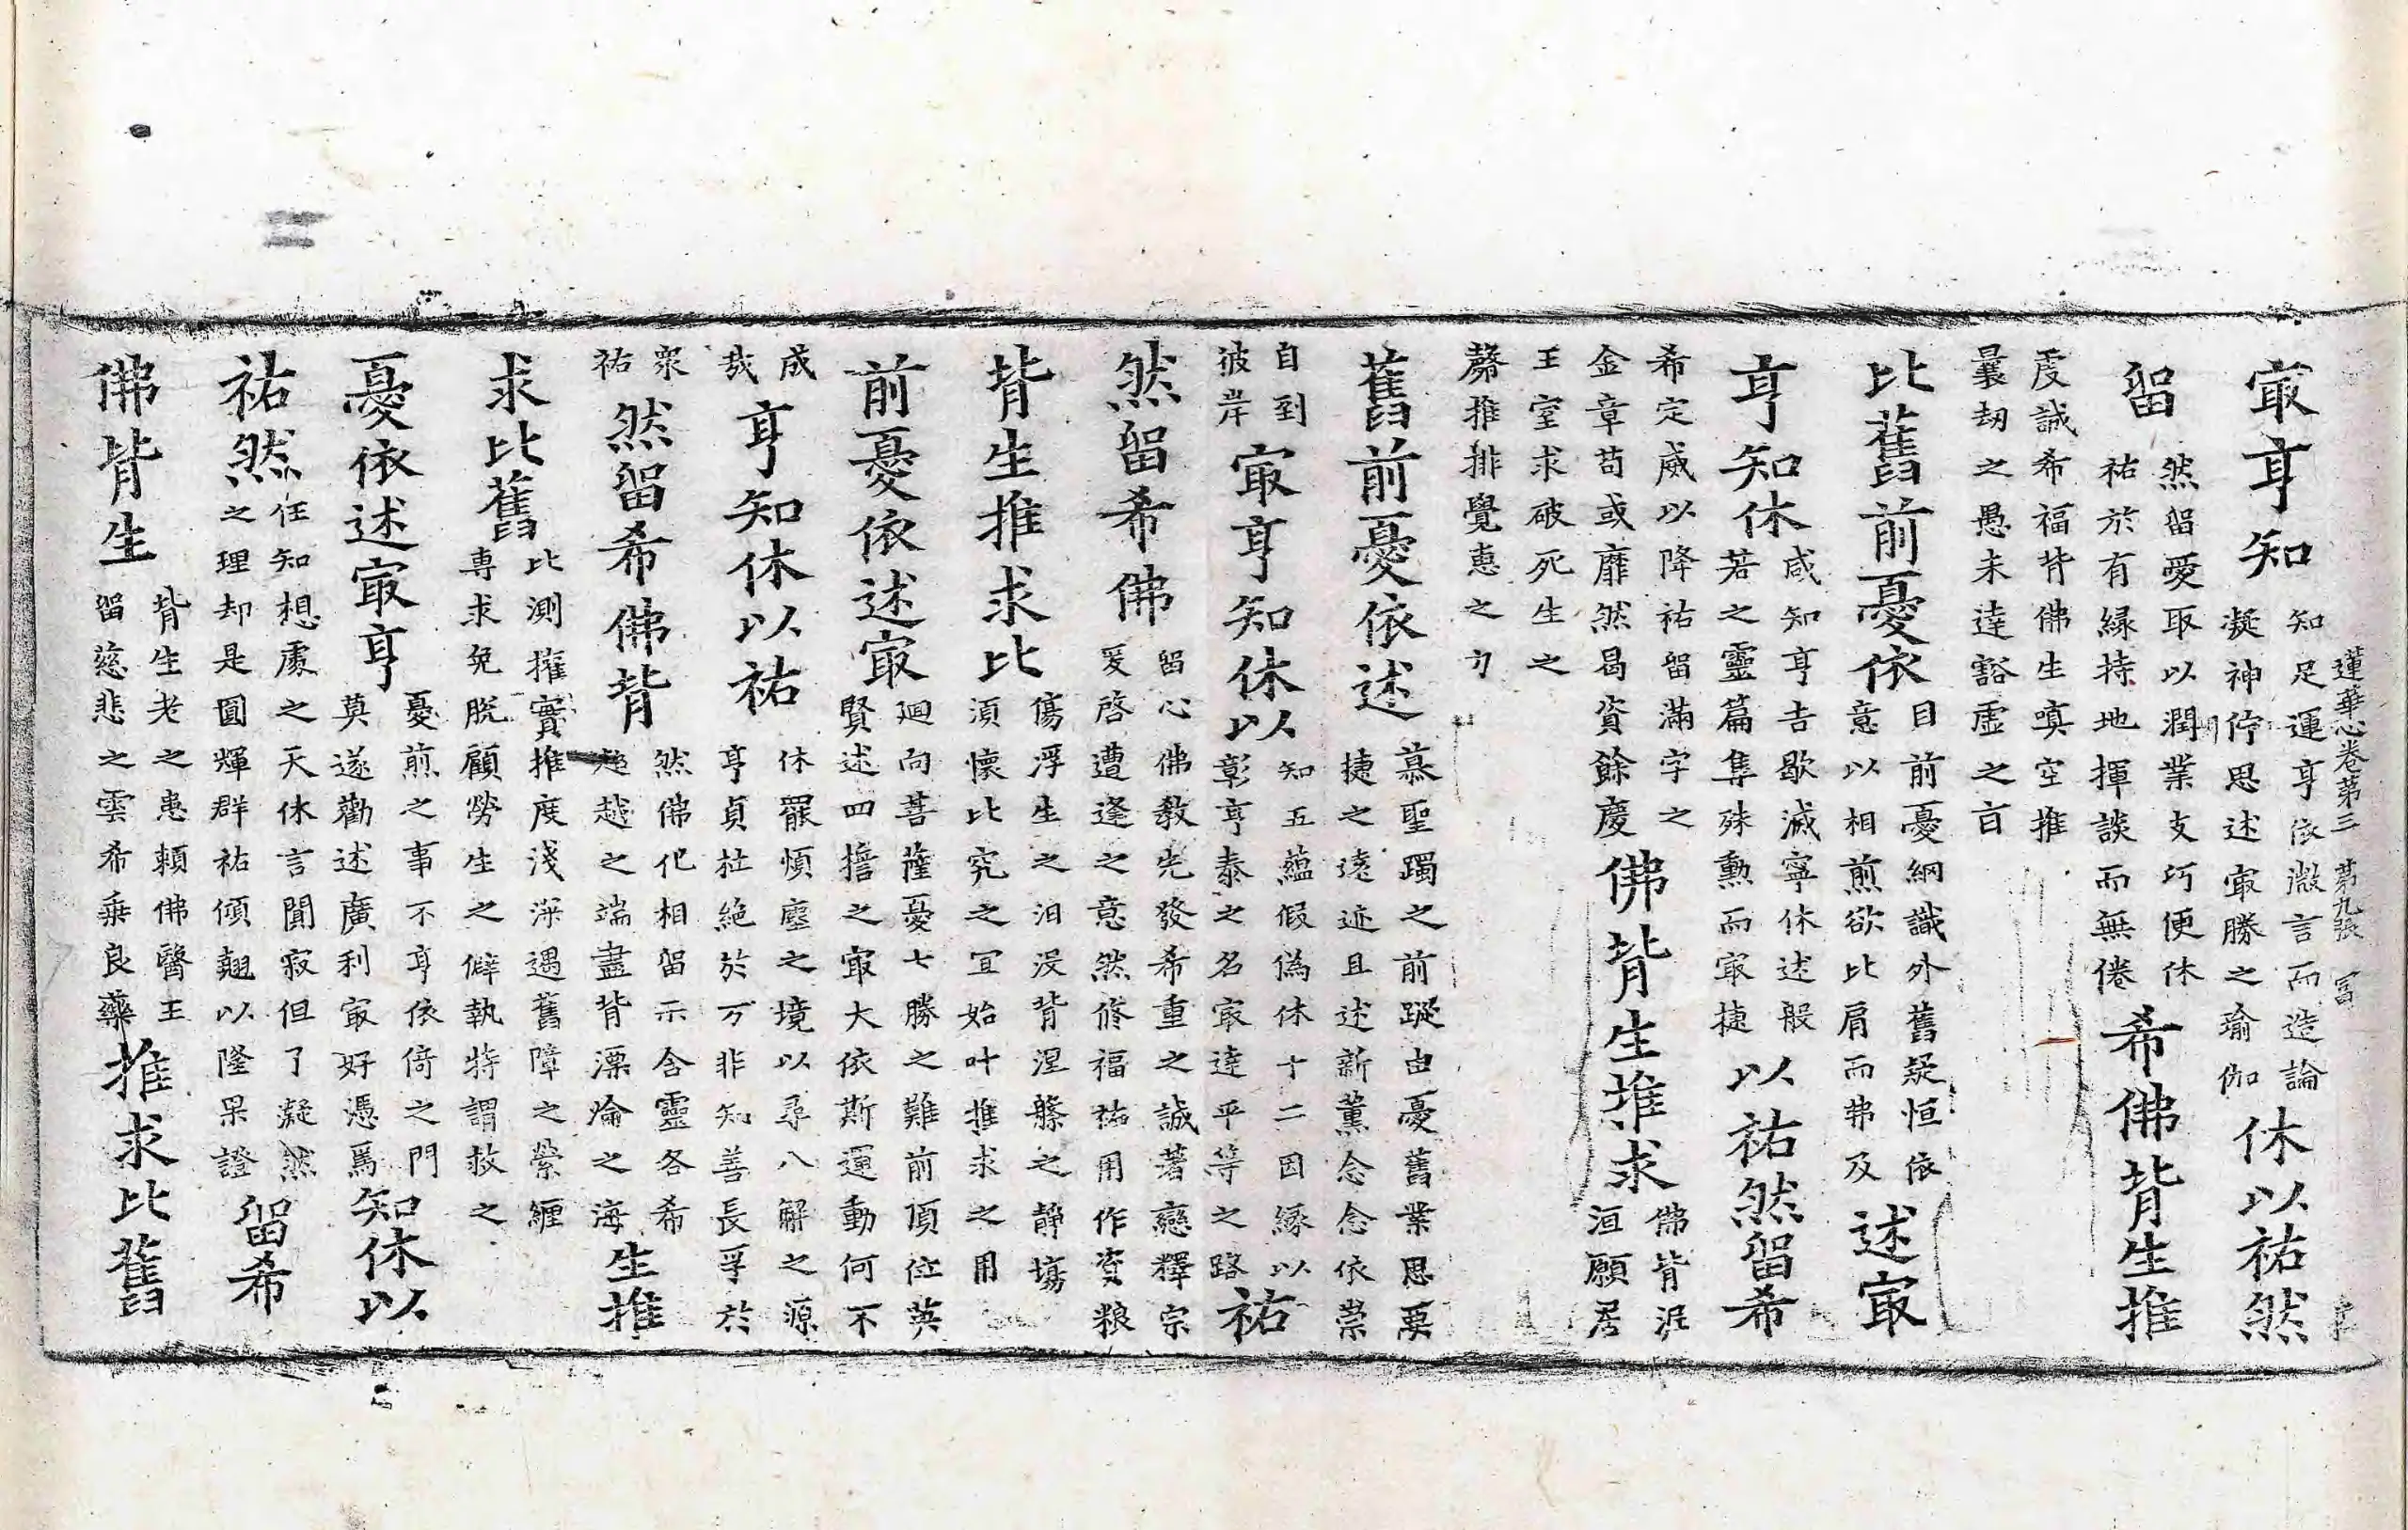 蓮華心卷第三 第九張 冨
㝡亨知
知足運亨依微言而造論
凝神佇思述㝡勝之瑜伽
休以祐然
留
然留愛取以潤業支巧便休
祐於有緣持地揮談而無倦
希佛背生推
虔誠希福背佛生嗔空推
曩劫之愚未達豁虛之旨
比舊前憂依
目前憂綱識外舊疑恒依
意以相煎欲比肩而弗及
述㝡
亨知休
咸知亨吉歇滅寧休述般
若之靈篇隽殊勳而㝡捷
以祐然留希
希定威以降祐留滿字之
金章苟或靡然曷資餘慶
佛背生推求
佛背涯
洹願居
王室求破死生之
推排覺惠之力
舊前憂依述
慕聖躅之前蹤由憂舊業思要
捷之遠迹且述新薰念念依崇
自到
彼岸
㝡亨知休以
知五蘊假偽休十二因緣以
彰亨泰之名㝡達平等之路
祐
然留希佛
留心佛教先發希重之誠著戀釋宗
爰啓遭逢之意然修福祐用作資粮
背生推求比
傷浮生之汩没背涅槃之靜塲
須懷比究之宜始叶推求之用
前憂依述㝡
廻向菩薩憂七勝之難前頂位英
賢述四擔之㝡大依斯運動何不
成
哉
亨知休以祐
休罷煩塵之境以尋八解之源
亨貞杜絶於万非知善長孚於
衆
祐
然留希佛背
然佛化相留示含靈各希
超越之端盡背漂淪之海
生推
求比舊
比測摧實推度淺深遇舊障之縈纏
專求免脫顧勞生之僻執特謂救之
憂依述㝡亨
憂煎之事不亨依倚之門
莫遂勸述廣利㝡好憑焉
知休以
祐然
任知想處之天休言聞寂但了凝然
之理却是圓輝群祐傾翹以隆果證
留希
佛背生
背生老之患賴佛醫王
留慈悲之雲希垂良藥
推求比舊